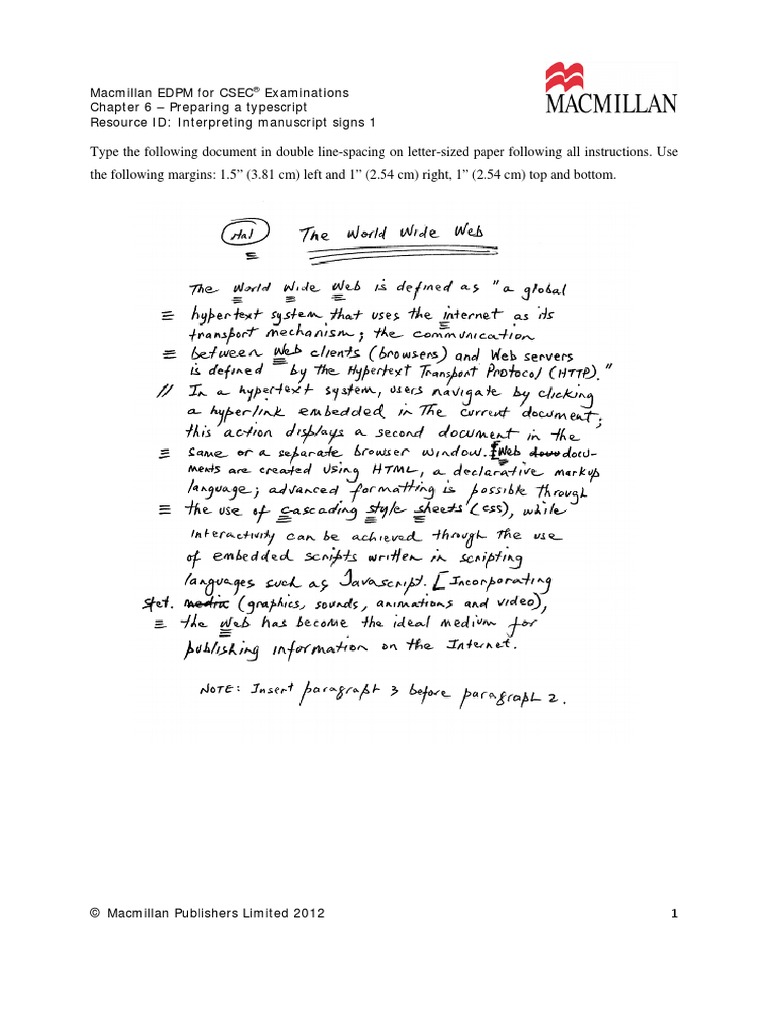 Macmillan EDPM for CSEC® Examinations
Chapter 6 – Preparing a typescript
Resource ID: Interpreting manuscript signs 1
MACMILLAN
Type the following document in double line-spacing on letter-sized paper following all instructions. Use
the following margins: 1.5” (3.81 cm) left and 1” (2.54 cm) right, 1” (2.54 cm) top and bottom.
The World Wide Web
The World Wide Web is defined as "a global
hypertext system that uses the internet as its
transport mechanism; the communication
between Web clients (browsers) and Web servers
is defined by the Hypertext Transport Protocol (HTTP)."
// In a hypertext system, users navigate by clicking
a hyperlink embedded in The current document;
this action displays a second document in the
same or a separate browser window. [Web docu-
ments are created using HTML, a declarative markup
language; advanced formatting is possible through
the use of cascading style sheets (css), while
interactivity can be achieved through the use
of embedded scripts written in scripting
languages such as Javascript. [Incorporating
stet. media (graphics, sounds, animations and video),
the Web has become the ideal medium for
publishing information on the Internet.
NOTE: Insert paragraph 3 before paragraph 2.
© Macmillan Publishers Limited 2012 1